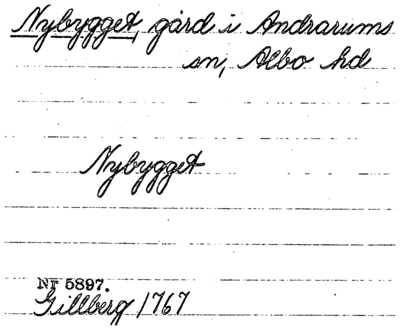 Nybygget, gård i Andrarums
sn, Albo hd
Nybygget
Nr 5897.
Gillberg 1767